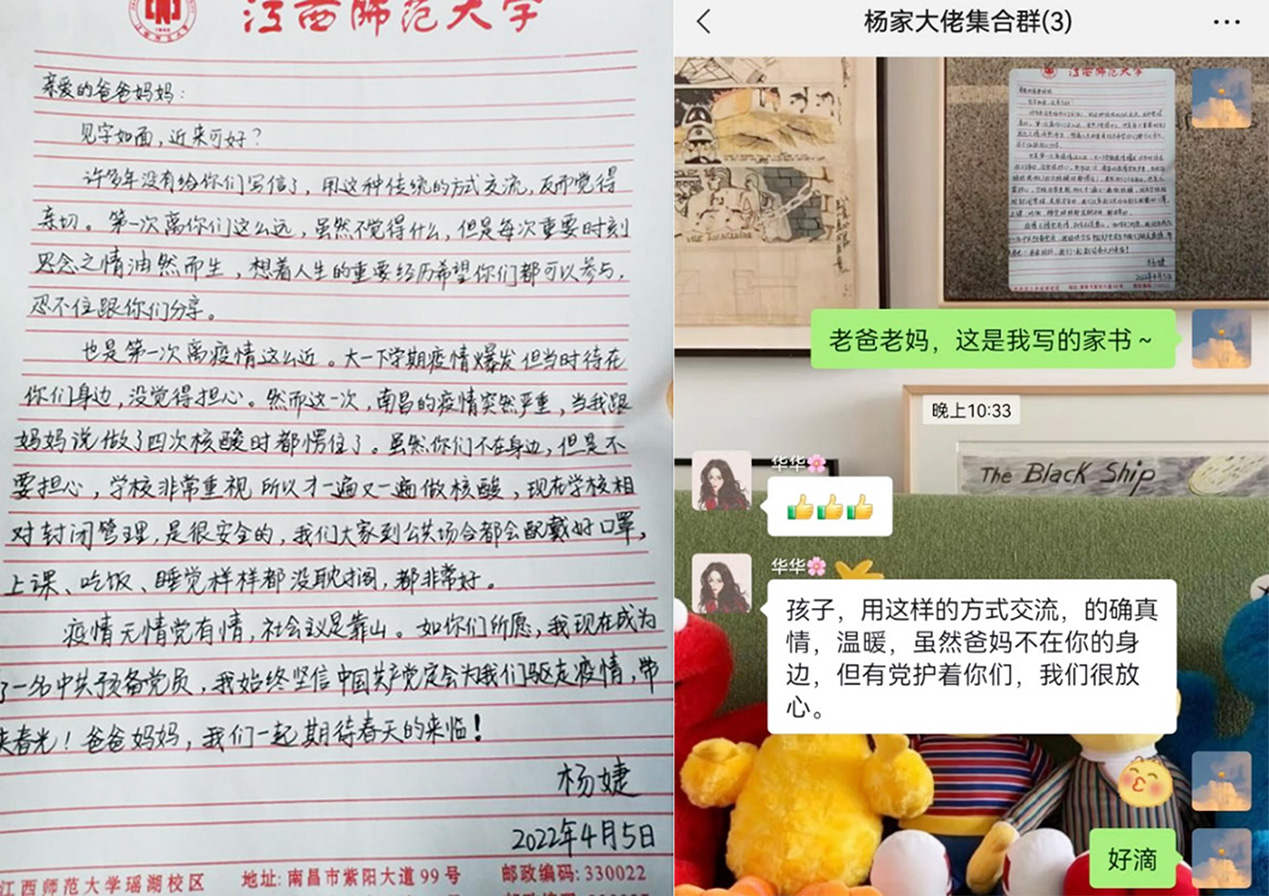 江西师范大学
亲爱的爸爸妈妈:
见字如面,近来可好?
许多年没有给你们写信了,用这种传统的方式交流,反而觉得
亲切。第一次离你们这么远,虽然不觉得什么,但是每次重要时刻
思念之情油然而生,想着人生的重要经历希望你们都可以参与,
忍不住跟你们分享。
也是第一次离疫情这么近。大一下学期疫情爆发但当时待在
你们身边,没觉得担心。然而这一次,南昌的疫情突然严重,当我跟
妈妈说做了四次核酸时都愣住了。虽然你们不在身边,但是不
要担心,学校非常重视所以才一遍又一遍做核酸,现在学校相
对封闭管理,是很安全的,我们大家到公共场合都会配戴好口罩,
上课、吃饭、睡觉样样都没耽搁,都非常好。
疫情无情党有情,社会主义是靠山。如你们所愿,我现在成为
了一名中共预备党员,我始终坚信中国共产党定会为我们驱走疫情,带
来春光!爸爸妈妈,我们一起期待春天的来临!
杨婕
2022年4月5日
江西师范大学瑶湖校区 地址:南昌市紫阳大道99号 邮政编码:330022
杨家大佬集合群(3)
江西师范大学
杨婕
2022年4月5日
老爸老妈,这是我写的家书~
晚上10:33
The Black Ship
华华🌸
👍👍👍
华华🌸
孩子,用这样的方式交流,的确真
情,温暖,虽然爸妈不在你的身
边,但有党护着你们,我们很放
心。
好滴